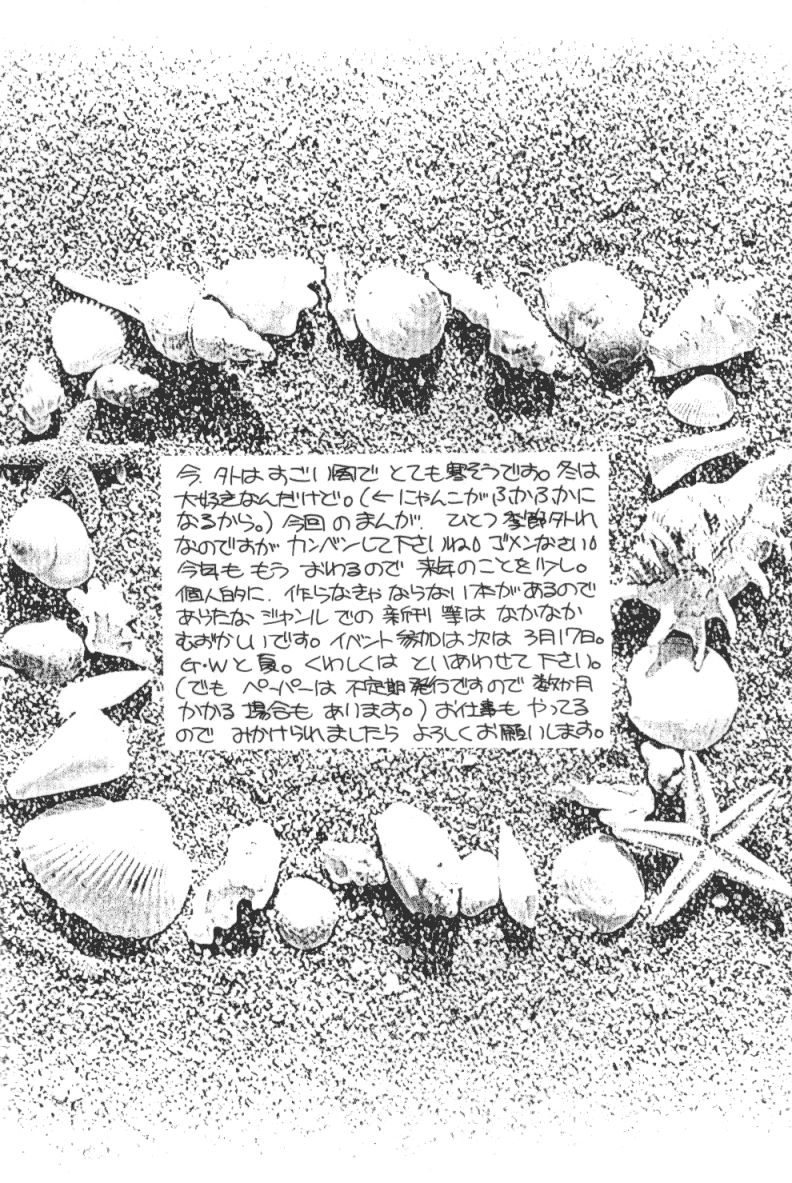 今、外はすごい風で とても寒そうです。冬は
大好きなんだけど。(←にゃんこがふかふかに
なるから。)今回のまんが、ひとつ季節外れ
なのですが カンベンして下さいね。ゴメンなさい。
今年も もう おわるので 来年のことを少し。
個人的に、作らなきゃ ならない本があるので
あらたな ジャンルでの 新刊 等は なかなか
むずかしいです。イベント参加は次は 3月17日。
G・Wと夏。くわしくは といあわせて 下さい。
(でも ペーパーは 不定期発行ですので 数か月
かかる 場合も あります。)お仕事も やってる
ので みかけられましたら よろしくお願いします。